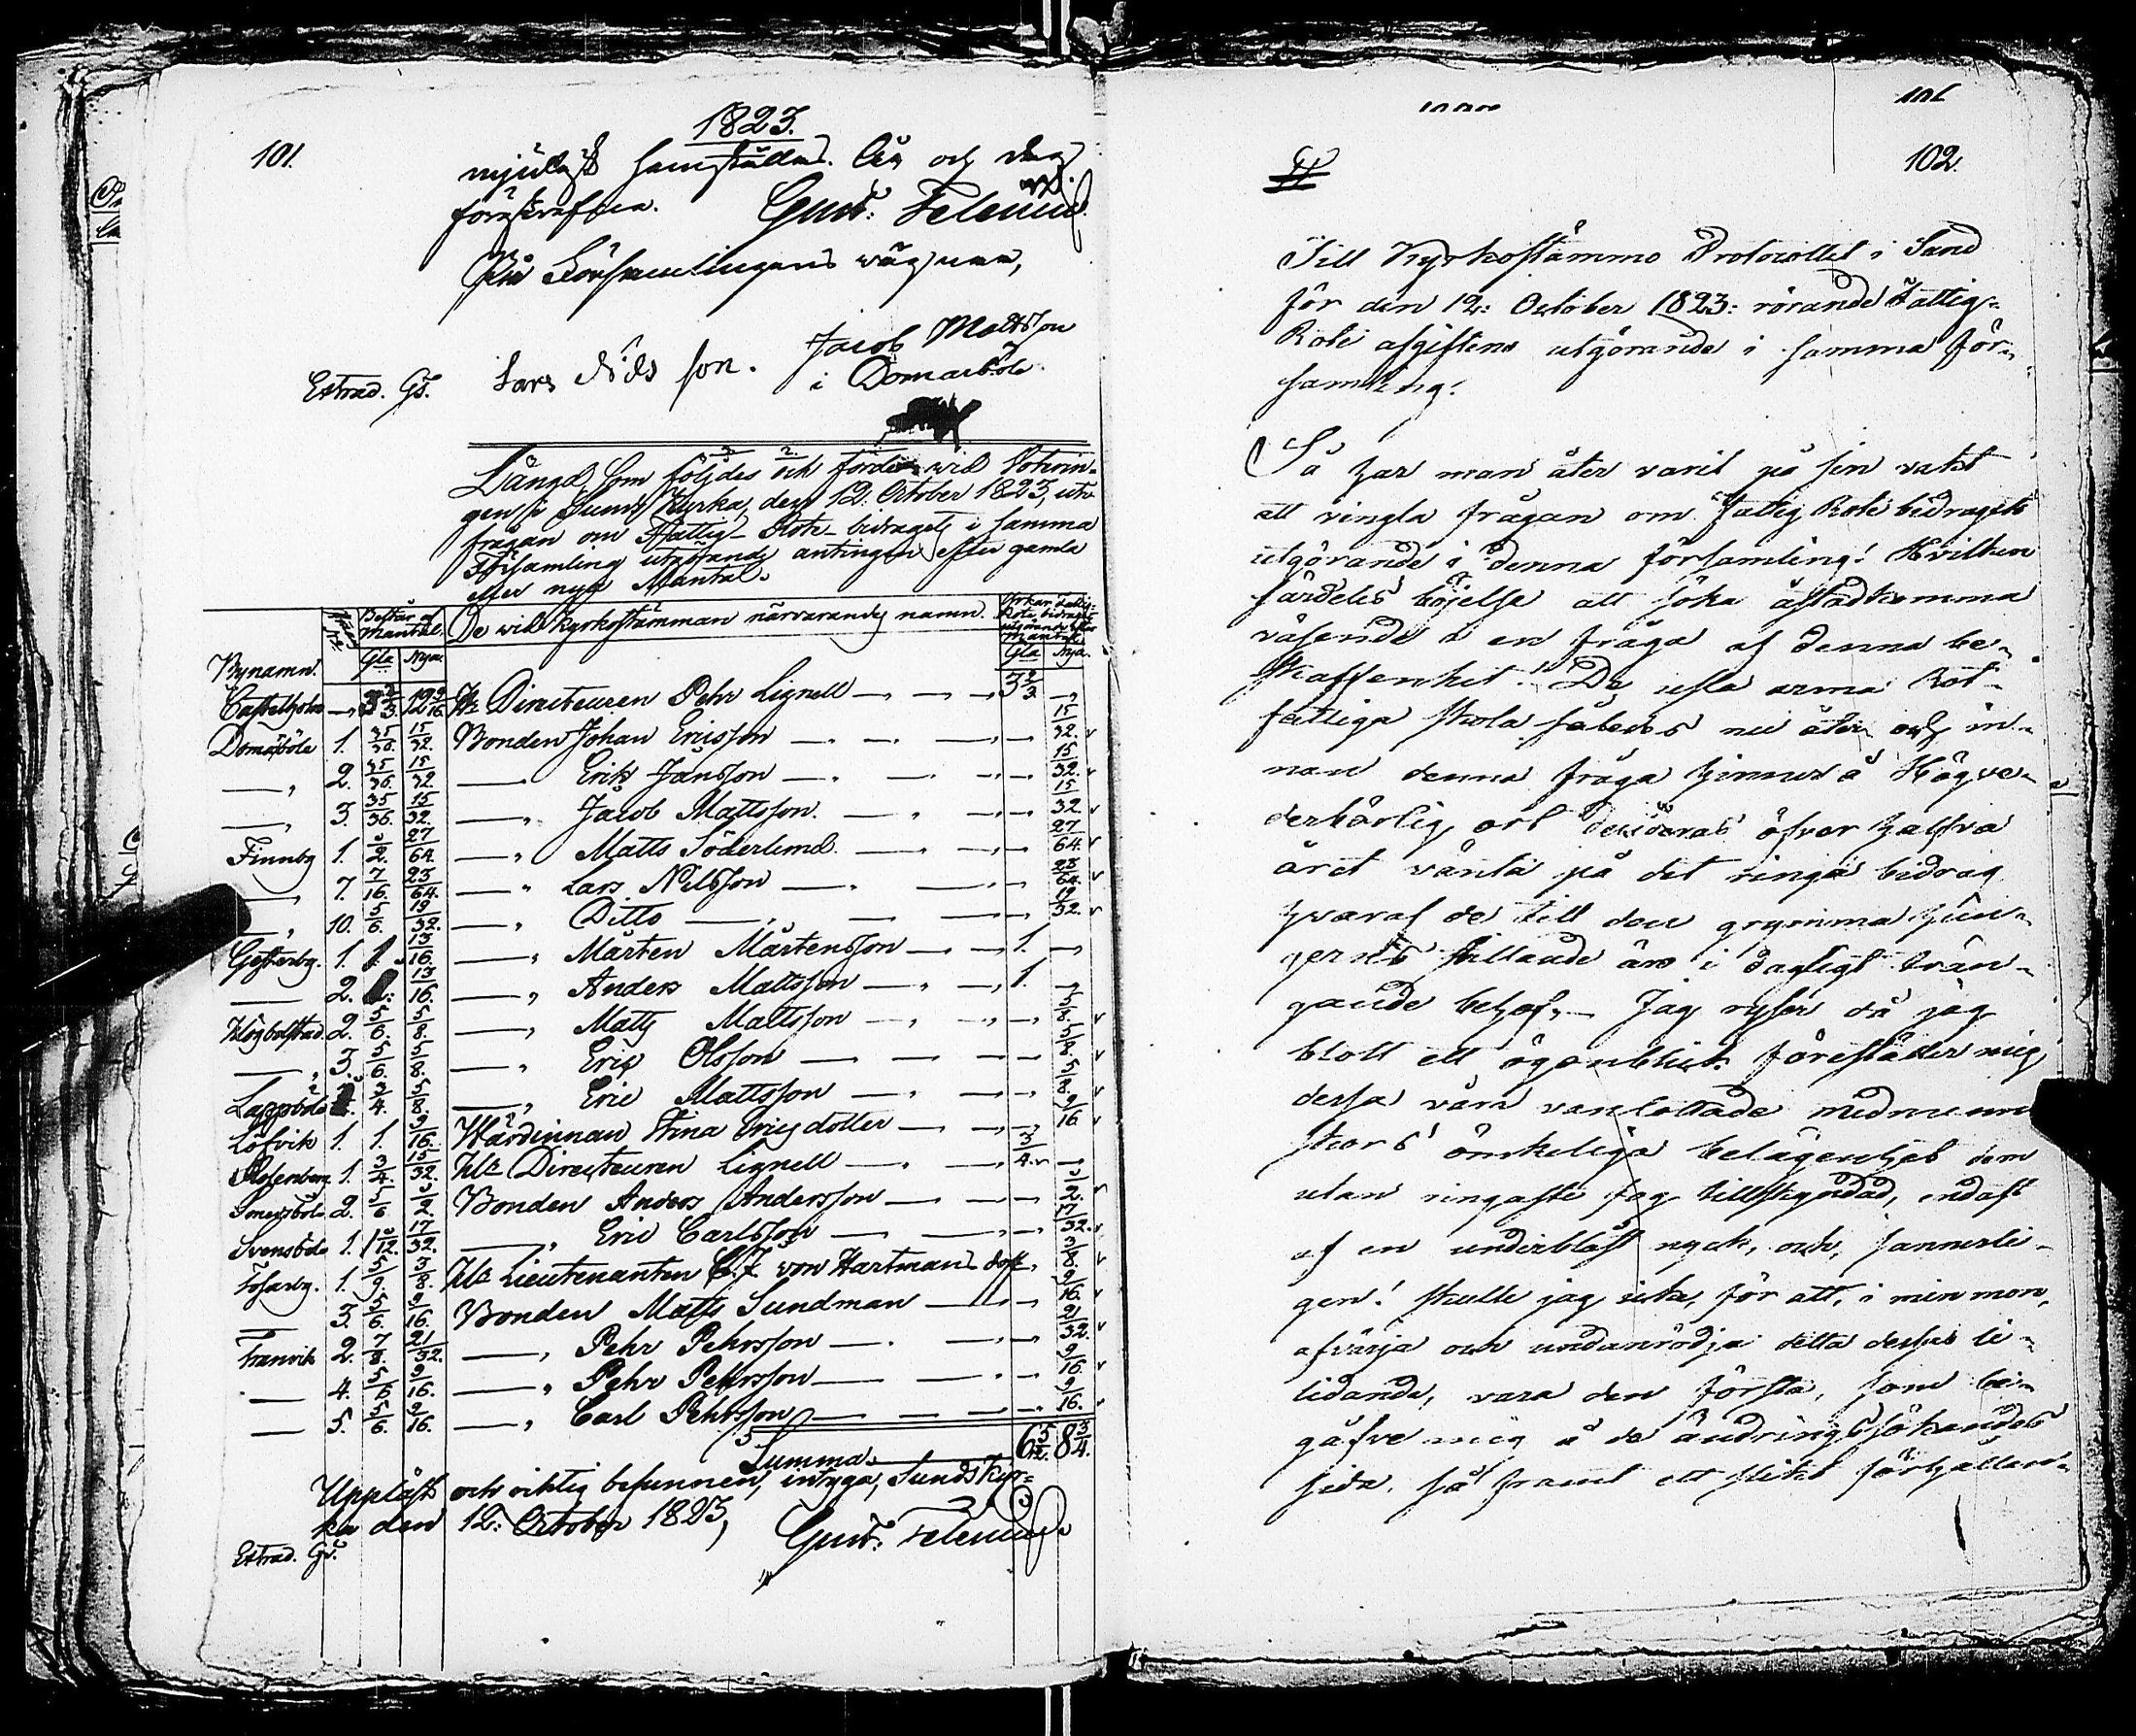 1823.
101.
mjukast hemställes. År och dag
förskrefne. Gust:
På Församlingens vägnar,
Lars Nils son. Jacob Mattsson
i Domarböle
Extrad. Gs.
Längd, som följdes och fördes wid Voterin-
gen i Sunds Kyrka, den 12. October 1823, uti
frågan om Fattig-Rote-bidragets i samma
Församling utgörande antingen efter gamla
eller nya Mantal.
Bynamn. Består af Mantal. Gla Nya. De wid Kyrkostämman närvarandes namn. Gla Nya.
Castelholm — Hr Directeuren Pehr Lignell — — — 3 2/3 —
Domarböle 1. 35/36. 15/32. Bonden Johan Ericsson — — — 15/32.
—, 2. 35/36. 15/32. —, Erik Jansson — — — 15/32.
—, 3. 35/36. 15/32. —, Jacob Mattsson. — — — 15/32
Finnby 1. 1/2. 27/64. —, Matts Söderlund. — — — 27/64.
—, 7. 7/16. 23/64. —, Lars Nilsson — — — 23/64.
—, 10. 5/6. 19/32. —, Ditto — — — 19/32.
Gesterby. 1. 1. 13/16. —, Mårten Mårtensson — — 1. —
— 2. 13/16. —, Anders Mattsson — — 1. —
Högbolstad. 2. 5/6. 5/8. —, Matts Mattsson — — — 5/8.
—, 3. 5/6. 5/8. —, Eric Olsson — — — 5/8.
Lappböle 3/4. 5/8. —, Eric Mattsson — — — 5/8.
Löfvik 1. 1. 9/16. Wärdinnan Stina Ersdotter — — 9/16
Rosenberg. 1. 3/4. 15/32. Hr Directeuren Lignell — — 3/4. —
Smedsböle. 2. 5/6 1/2. Bonden Anders Andersson — — — 1/2.
Svensböle 1. 1 1/12. 17/32. —, Eric Carlsson — — — 17/32.
Tosarby. 1. 5/9. 3/8. Hr Lieutenanten C. J. von Hartmans — 3/8.
— 3. 5/6. 9/16. Bonden Matts Sundman — — 9/16.
Tranvik 2. 7/8. 21/32. —, Pehr Pehrsson — — — 21/32.
— 4. 5/6 9/16. —, Pehr Pehrsson — — — 9/16.
— 5. 5/6. 9/16. —, Carl Pehrsson — — — 9/16.
Summa. 6 5/12. 8 3/4.
Uppläst och riktig befunnen, intyga, Sunds Kyr-
ka den 12: October 1823, Gust:
Extrad. Gs.
102.
Till Kyrkostämmo Protocollet i Sund
för den 12: October 1823: rörande Fattig-
Rote afgiftens utgörande i samma För-
samling.
Så har man åter varit på sin vakt
att vingla frågan om Fattig Rote bidragets
utgörande i denna församling! Hvilken
särdeles böjelse att söka åstadkomma
väsende i en fråga af denna be-
skaffenhet! De usla arma Rot-
fattiga skola således nu åter och in-
nan denna fråga hinner å Högve-
derbörlig ort decideras öfver halfva
året vänta på det ringa bidrag
hvaraf de till den grymma hun-
gerns stillande äro i dagligt trän-
gande behof,— Jag ryser då jag
blott ett ögonblick föreställer mig,
dessa våra vanlottade medmenni
skors ömkeliga belägenhet som
utan ringaste fog tillskyndad, endast
af en underblåst nyck, och, sannerli-
gen! skulle jag icke, för att, i min mon,
afvärja och undanrödja detta dessas li-
lidande, vara den första, som be-
gåfve mig å de ändringssökandes
sida, så framt ett slikt förhållan-